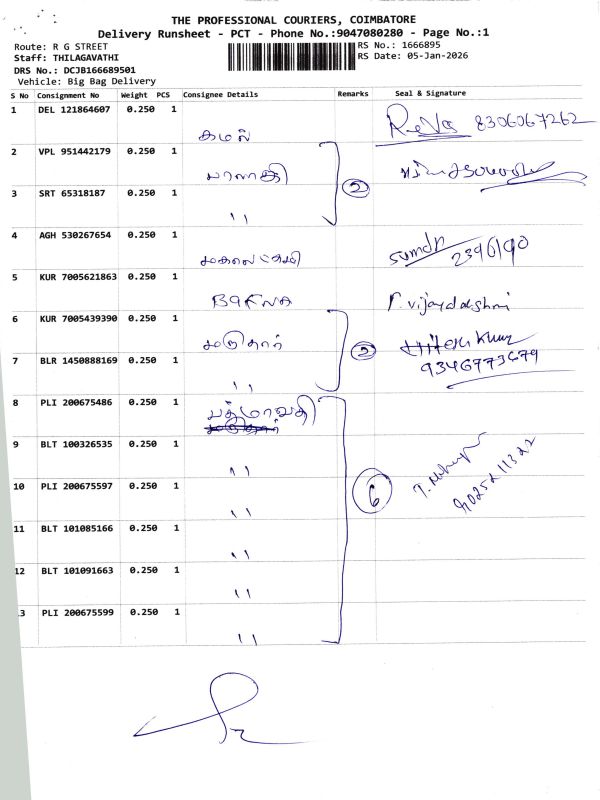 THE PROFESSIONAL COURIERS, COIMBATORE
Delivery Runsheet - PCT - Phone No.:9047080280 - Page No.:1
Route: R G STREET
RS No.: 1666895
Staff: THILAGAVATHI
RS Date: 05-Jan-2026
DRS No.: DCJB166689501
Vehicle: Big Bag Delivery
S No Consignment No Weight PCS Consignee Details Remarks Seal & Signature
1 DEL 121864607 0.250 1 கமல் 8306067262
2 VPL 951442179 0.250 1 பாலாஜி
2
3 SRT 65318187 0.250 1 "
4 AGH 530267654 0.250 1
5 KUR 7005621863 0.250 1 r. vijayalakshmi
6 KUR 7005439390 0.250 1
2
Hitesh Kumar
7 BLR 1450888169 0.250 1 " 9346773679
8 PLI 200675486 0.250 1 பத்மாவதி
9 BLT 100326535 0.250 1 "
10 PLI 200675597 0.250 1 "
6
11 BLT 101085166 0.250 1 "
12 BLT 101091663 0.250 1 "
3 PLI 200675599 0.250 1 "